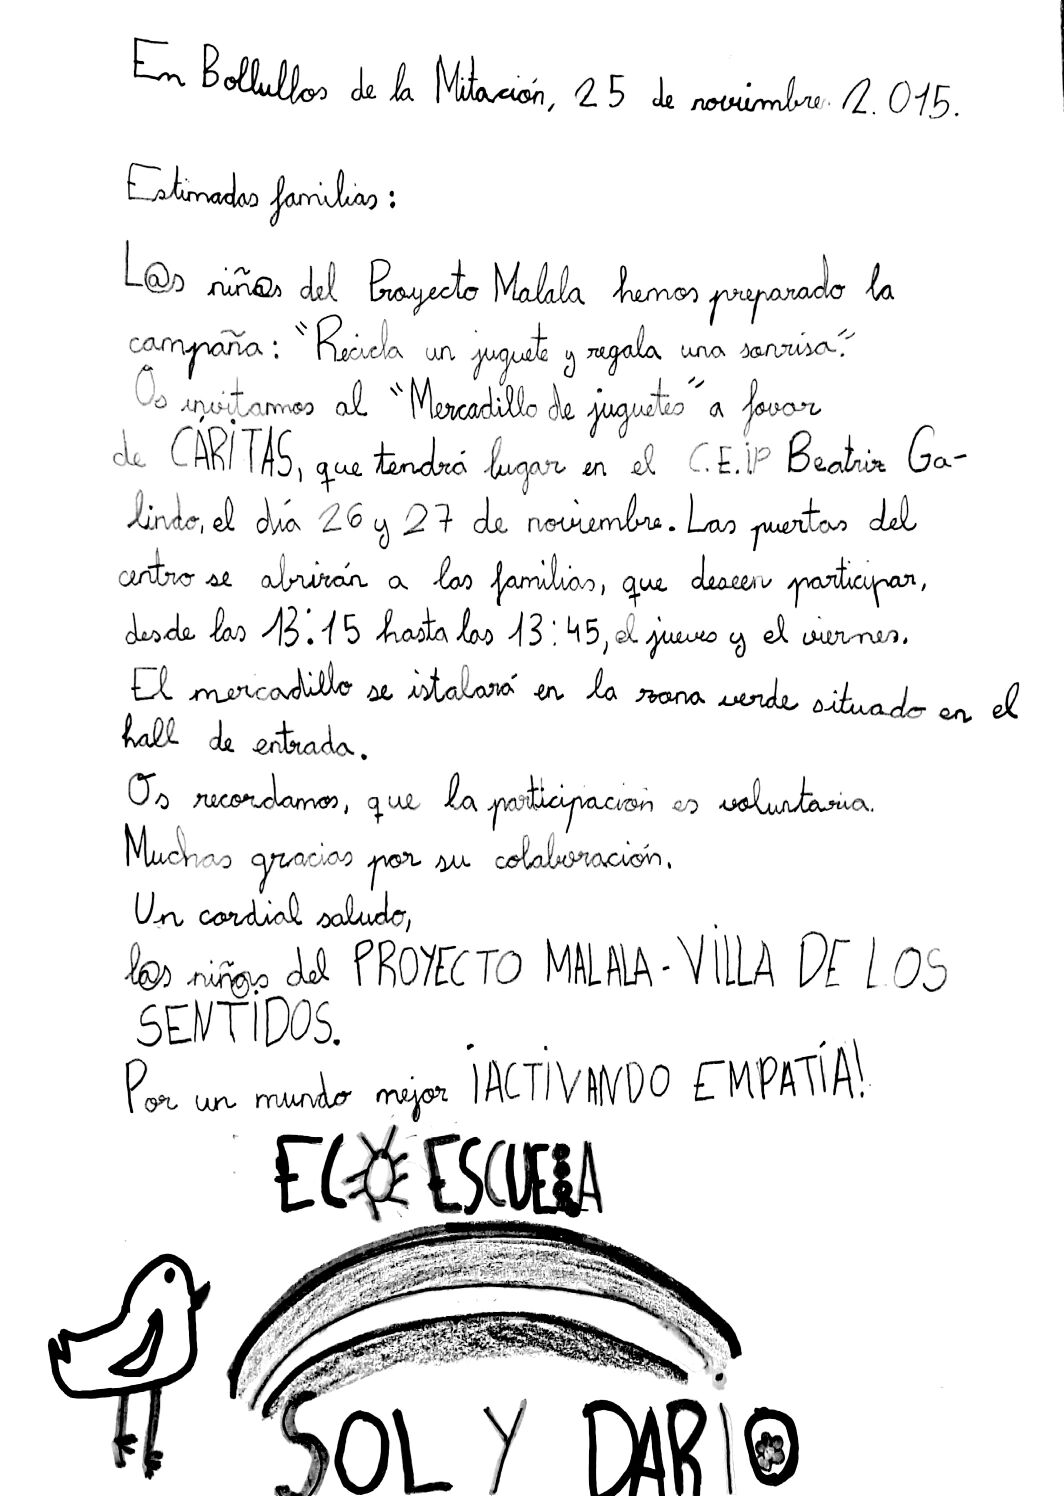 En Bollullos de la Mitación, 25 de noviembre 2.015.
Estimadas familias:
L@s niñ@s del Proyecto Malala hemos preparado la
campaña: "Recicla un juguete y regala una sonrisa."
Os invitamos al "Mercadillo de juguetes" a favor
de CÁRITAS, que tendrá lugar en el C.E.iP Beatriz Ga-
lindo, el día 26 y 27 de noviembre. Las puertas del
centro se abrirán a las familias, que deseen participar,
desde las 13:15 hasta las 13:45, el jueves y el viernes.
El mercadillo se istalará en la zona verde situado en el
hall de entrada.
Os recordamos, que la participación es voluntaria.
Muchas gracias por su colaboración.
Un cordial saludo,
l@s niñ@s del PROYECTO MALALA - VILLA DE LOS
SENTIDOS.
Por un mundo mejor ¡ACTIVANDO EMPATÍA!
ECOESCUELA
SOL Y DARIO